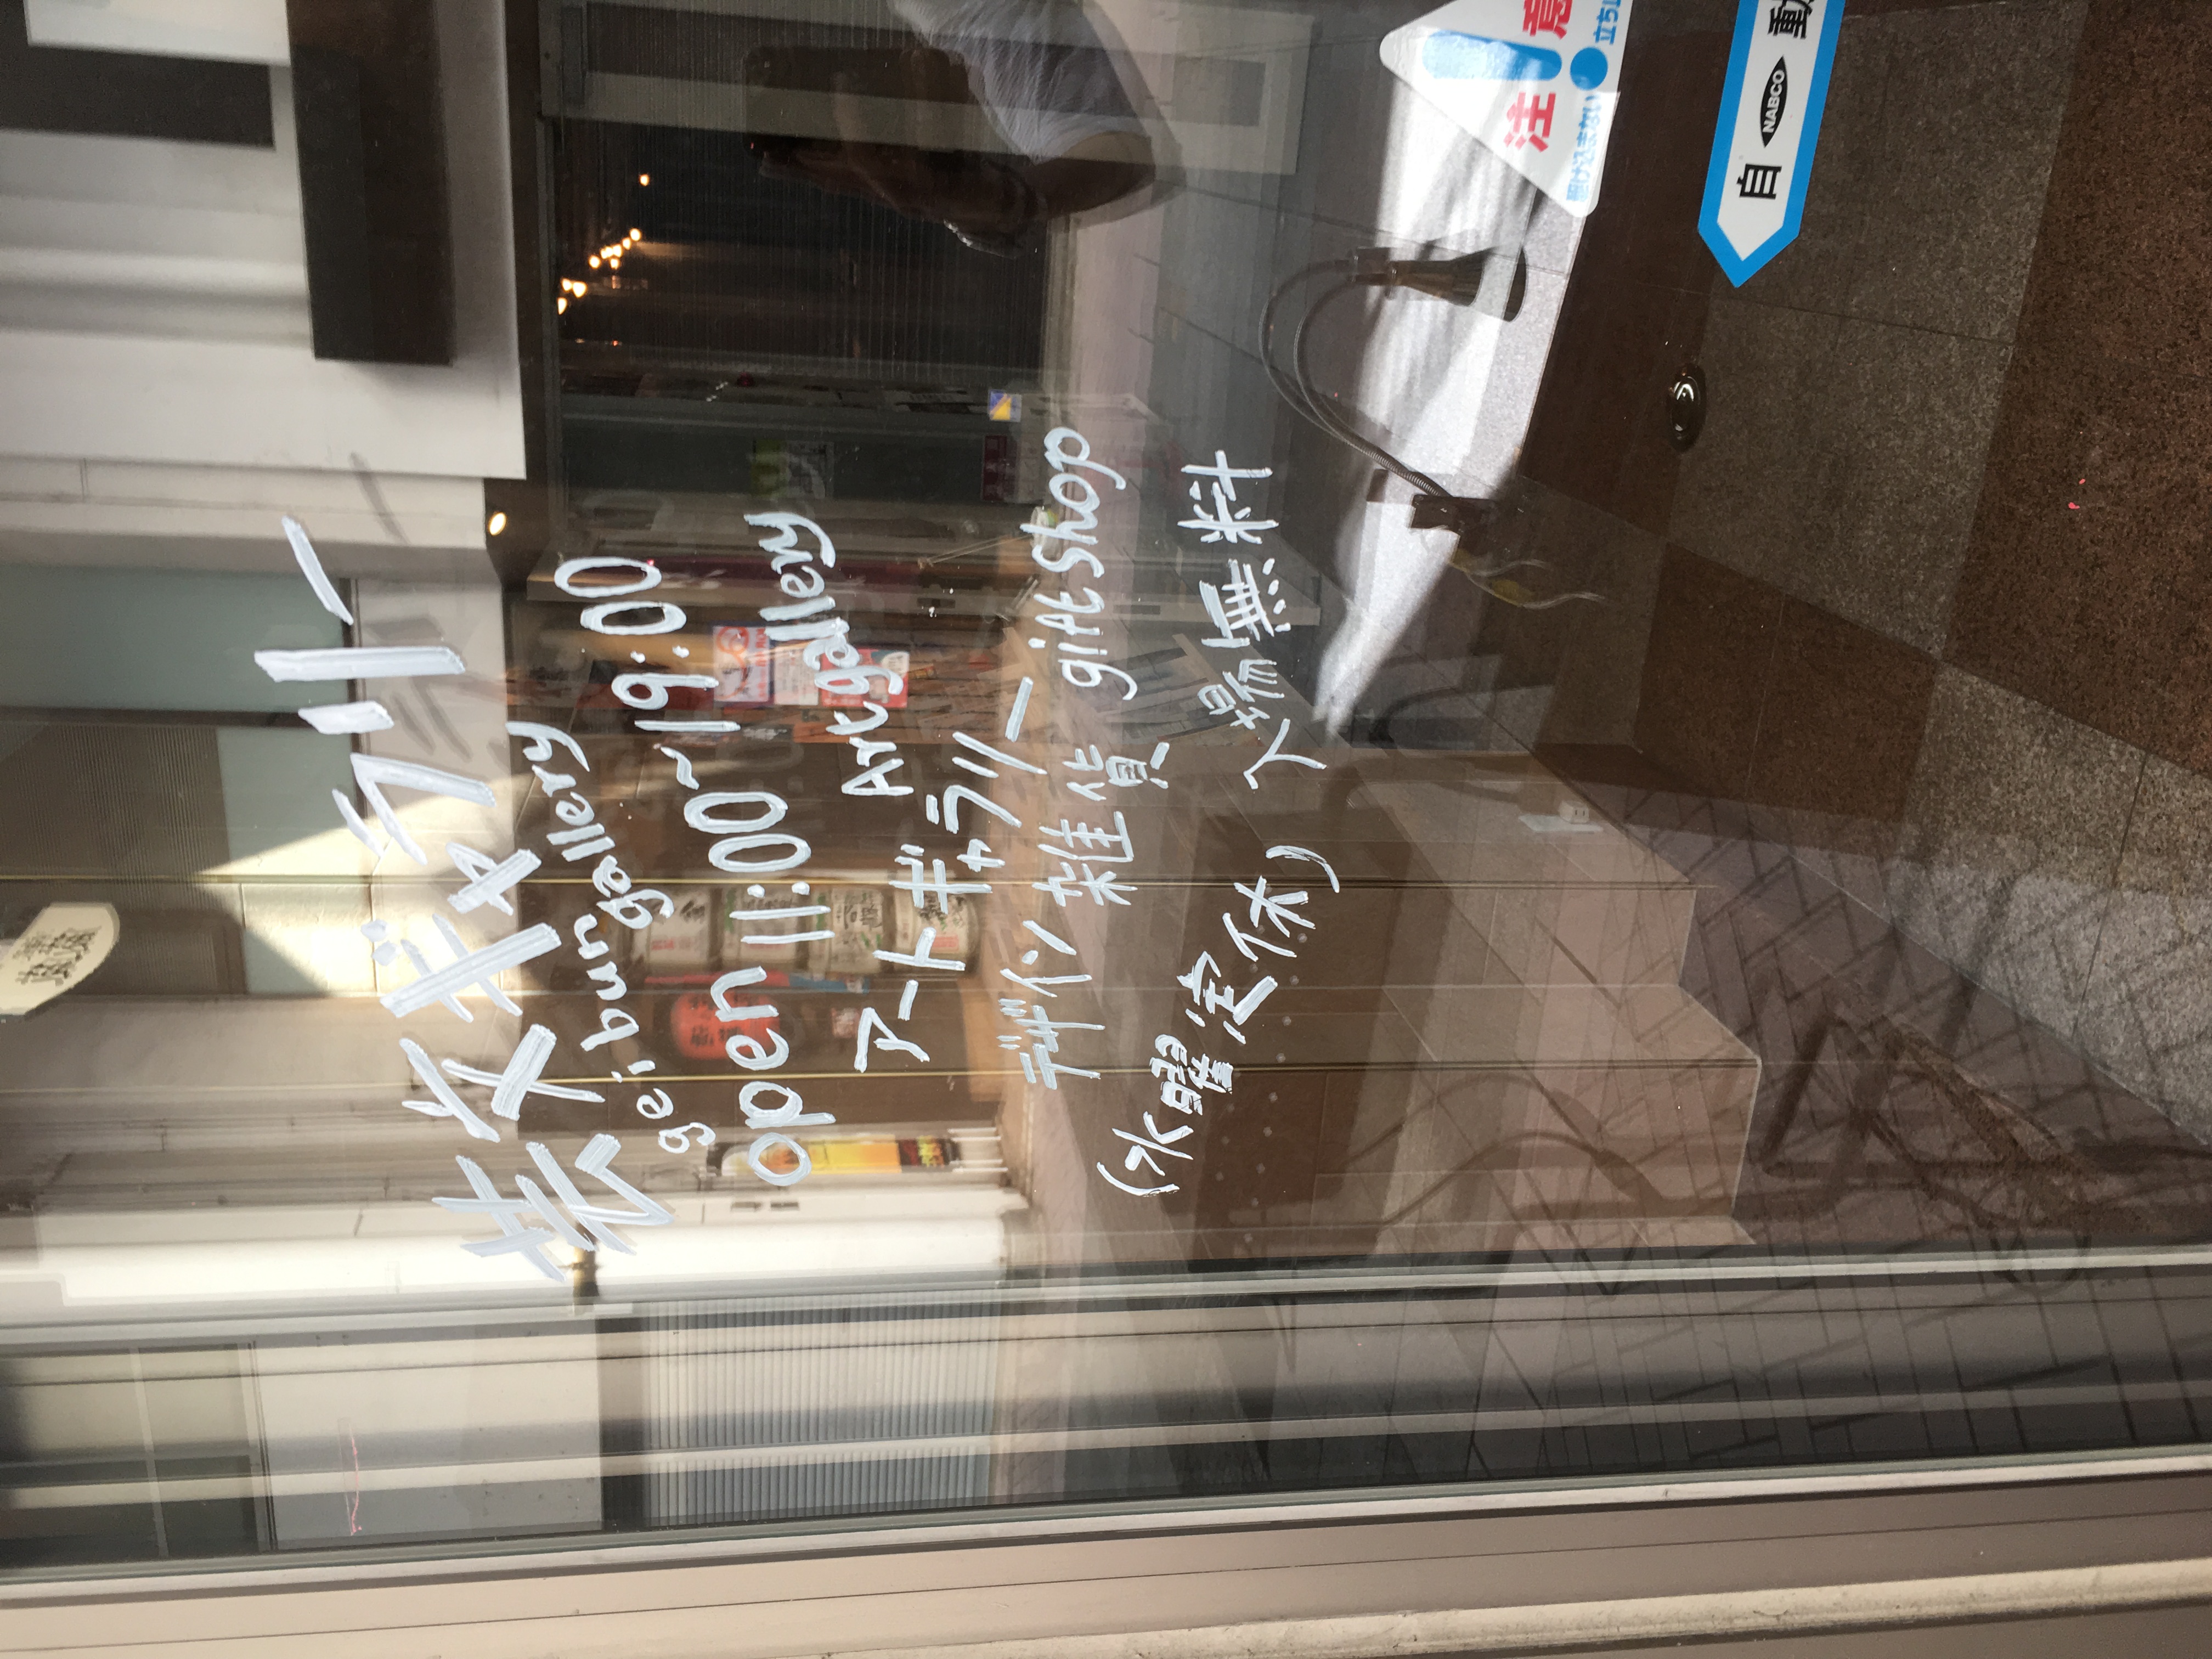 芸文ギャラリー
gei bun gallery
open 11:00~19:00
Art gallery
アートギャラリー
デザイン雑貨 gift shop
入場無料
(水曜定休)
注意
駆け込まない
立ち
自 NABCO 動